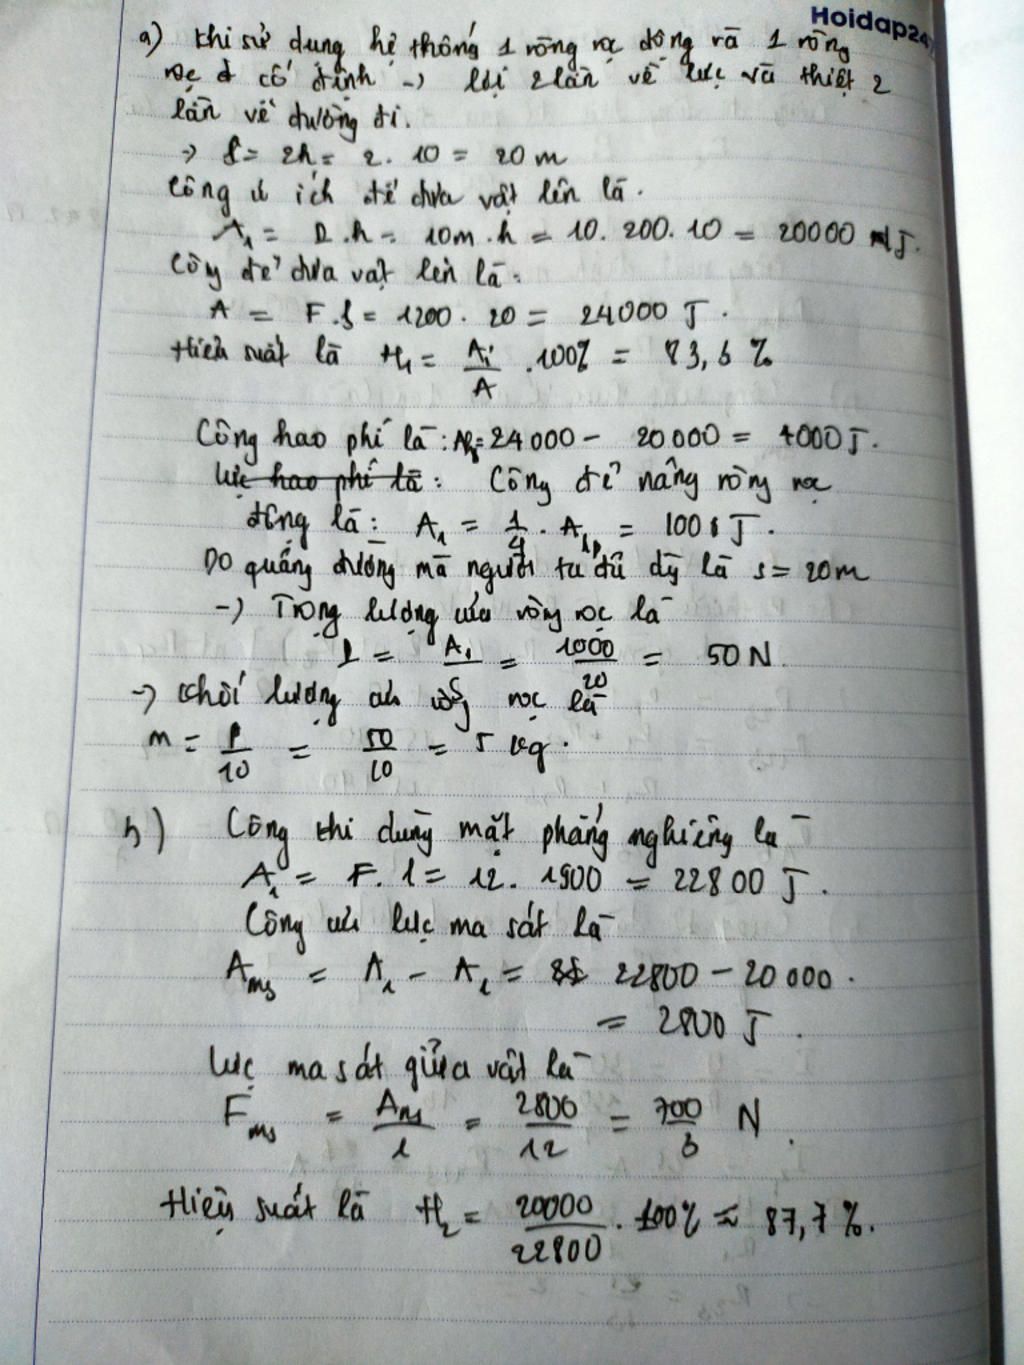 Hoidap247
a) Khi sử dụng hệ thống 1 ròng rọc động và 1 ròng
rọc cố định -> lợi 2 lần về lực và thiệt 2
lần về đường đi.
-> S = 2h = 2. 10 = 20 m
Công có ích để đưa vật lên là.
A₁ = P.h = 10m.h = 10. 200. 10 = 20000 J.
Công để đưa vật lên là:
A = F.S = 1200. 20 = 24000 J.
Hiệu suất là H₁ = Aᵢ/A .100% = 83,3 %
Công hao phí là: = 24000 - 20000 = 4000 J.
Lực hao phí là: Công để nâng ròng rọc
động là: A₁ = 1/4 . = 1000 J.
Do quãng đường mà người ta đã là s = 20m
-> Trọng lượng của ròng rọc là
P = A₁/S = 1000/20 = 50 N.
-> Khối lượng của ròng rọc là
m = P/10 = 50/10 = 5 kg.
b) Công khi dùng mặt phẳng nghiêng là
Aᵢ = F. l = 12. 1900 = 22800 J.
Công của lực ma sát là
Ams = Aᵢ - Aᵢ = 22800 - 20000.
= 2800 J.
Lực ma sát giữa vật là
Fms = Ams/l = 2800/12 = 700/3 N.
Hiệu suất là H₂ = 20000/22800 . 100% ≈ 87,7 %.